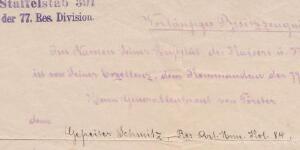 Staffelstab 391
der 77. Res. Division.
Vorläufiges Besitzzeugnis
Im Namen Seiner Majestät des Kaisers u. K
ist von Seiner Exzellenz, dem Kommandeur der 77
Herrn Generalleutnant von
dem
Gefreiter Schmitz, Res. Art. Mun. Kol. 84.